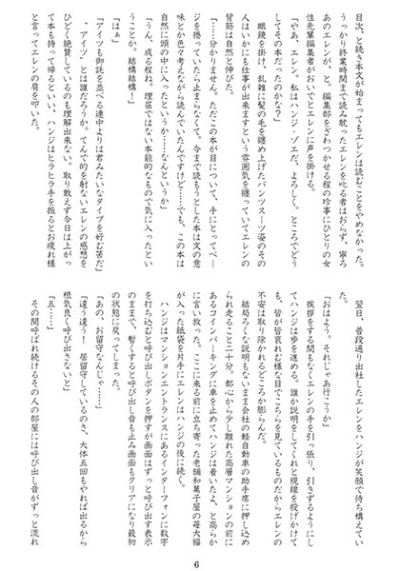 目次、と続き本文が始まってもエレンは読むことをやめなかった。
うっかり終業時間まで読み耽ったエレンを叱る者はおらず、寧ろ
あのエレンが、と。編集部をざわつかせる程の珍事にひとりの女
性先輩編集者がおいでとエレンに声を掛ける。
「やあ、エレン。私はハンジ・ゾエだ、よろしく。ところでどう
してその本だったのかな?」
眼鏡を掛け、乱雑に髪の毛を纏め上げたパンツスーツ姿のその
人はいかにも仕事が出来ますという雰囲気を纏っていてエレンの
背筋は自然と伸びた。
「……分かりません。ただこの本が目について、手にとってペー
ジを捲っていたら止まらなくて。今まで読もうとした本は文の意
味とか色々考えながら読んでいたんですけど……でも、この本は
自然に頭の中に入ったというか……なんというか」
「うん、成る程ね。理屈ではない本能的なもので気に入ったとい
うことか。結構結構!」
「はぁ」
「アイツも御託を並べる連中よりは君みたいなタイプを好む筈だ」
"アイツ"とは誰だろうか。てんで的を射ないエレンの感想を
ひどく絶賛しているのも理解出来ない。取り敢えず今日は上がっ
て本も持って帰るといい、ハンジはヒラヒラ手を振るとお疲れ様
と言ってエレンの肩を叩いた。
翌日、普段通り出社したエレンをハンジが笑顔で待ち構えてい
た。
「おはよう。それじゃあ行こうか」
挨拶をする間もなくエレンの手を引っ張り、引きずるようにし
てハンジは歩を進める。誰か説明をしてくれと視線を投げかけて
も、皆が皆哀れむ様な目でこちらを見ているものだからエレンの
不安は取り除かれるどころか膨らんだ。
結局ろくな説明もないまま会社の軽自動車の助手席に押し込め
られ走ること二十分。都心から少し離れた高層マンションの前に
あるコインパーキングに車を止めてハンジは着いたよ、と高らか
に言い放った。ここに来る前に立ち寄った老舗和菓子屋の苺大福
が入った紙袋を片手にエレンはハンジの後に続く。
ハンジはマンションエントランスにあるインターフォンに数字
を打ち込むと呼び出しボタンを押すが画面はずっと呼び出す表示
のままで、暫くすると呼び出し音も止み画面もクリアになり最初
の状態に戻ってしまった。
「あの、お留守なんじゃ……」
「違う違う! 居留守しているのさ、大体五回もやれば出るから
根気良く呼び出さないと」
「五……」
その間呼ばれ続けるその人の部屋には呼び出し音がずっと流れ
6